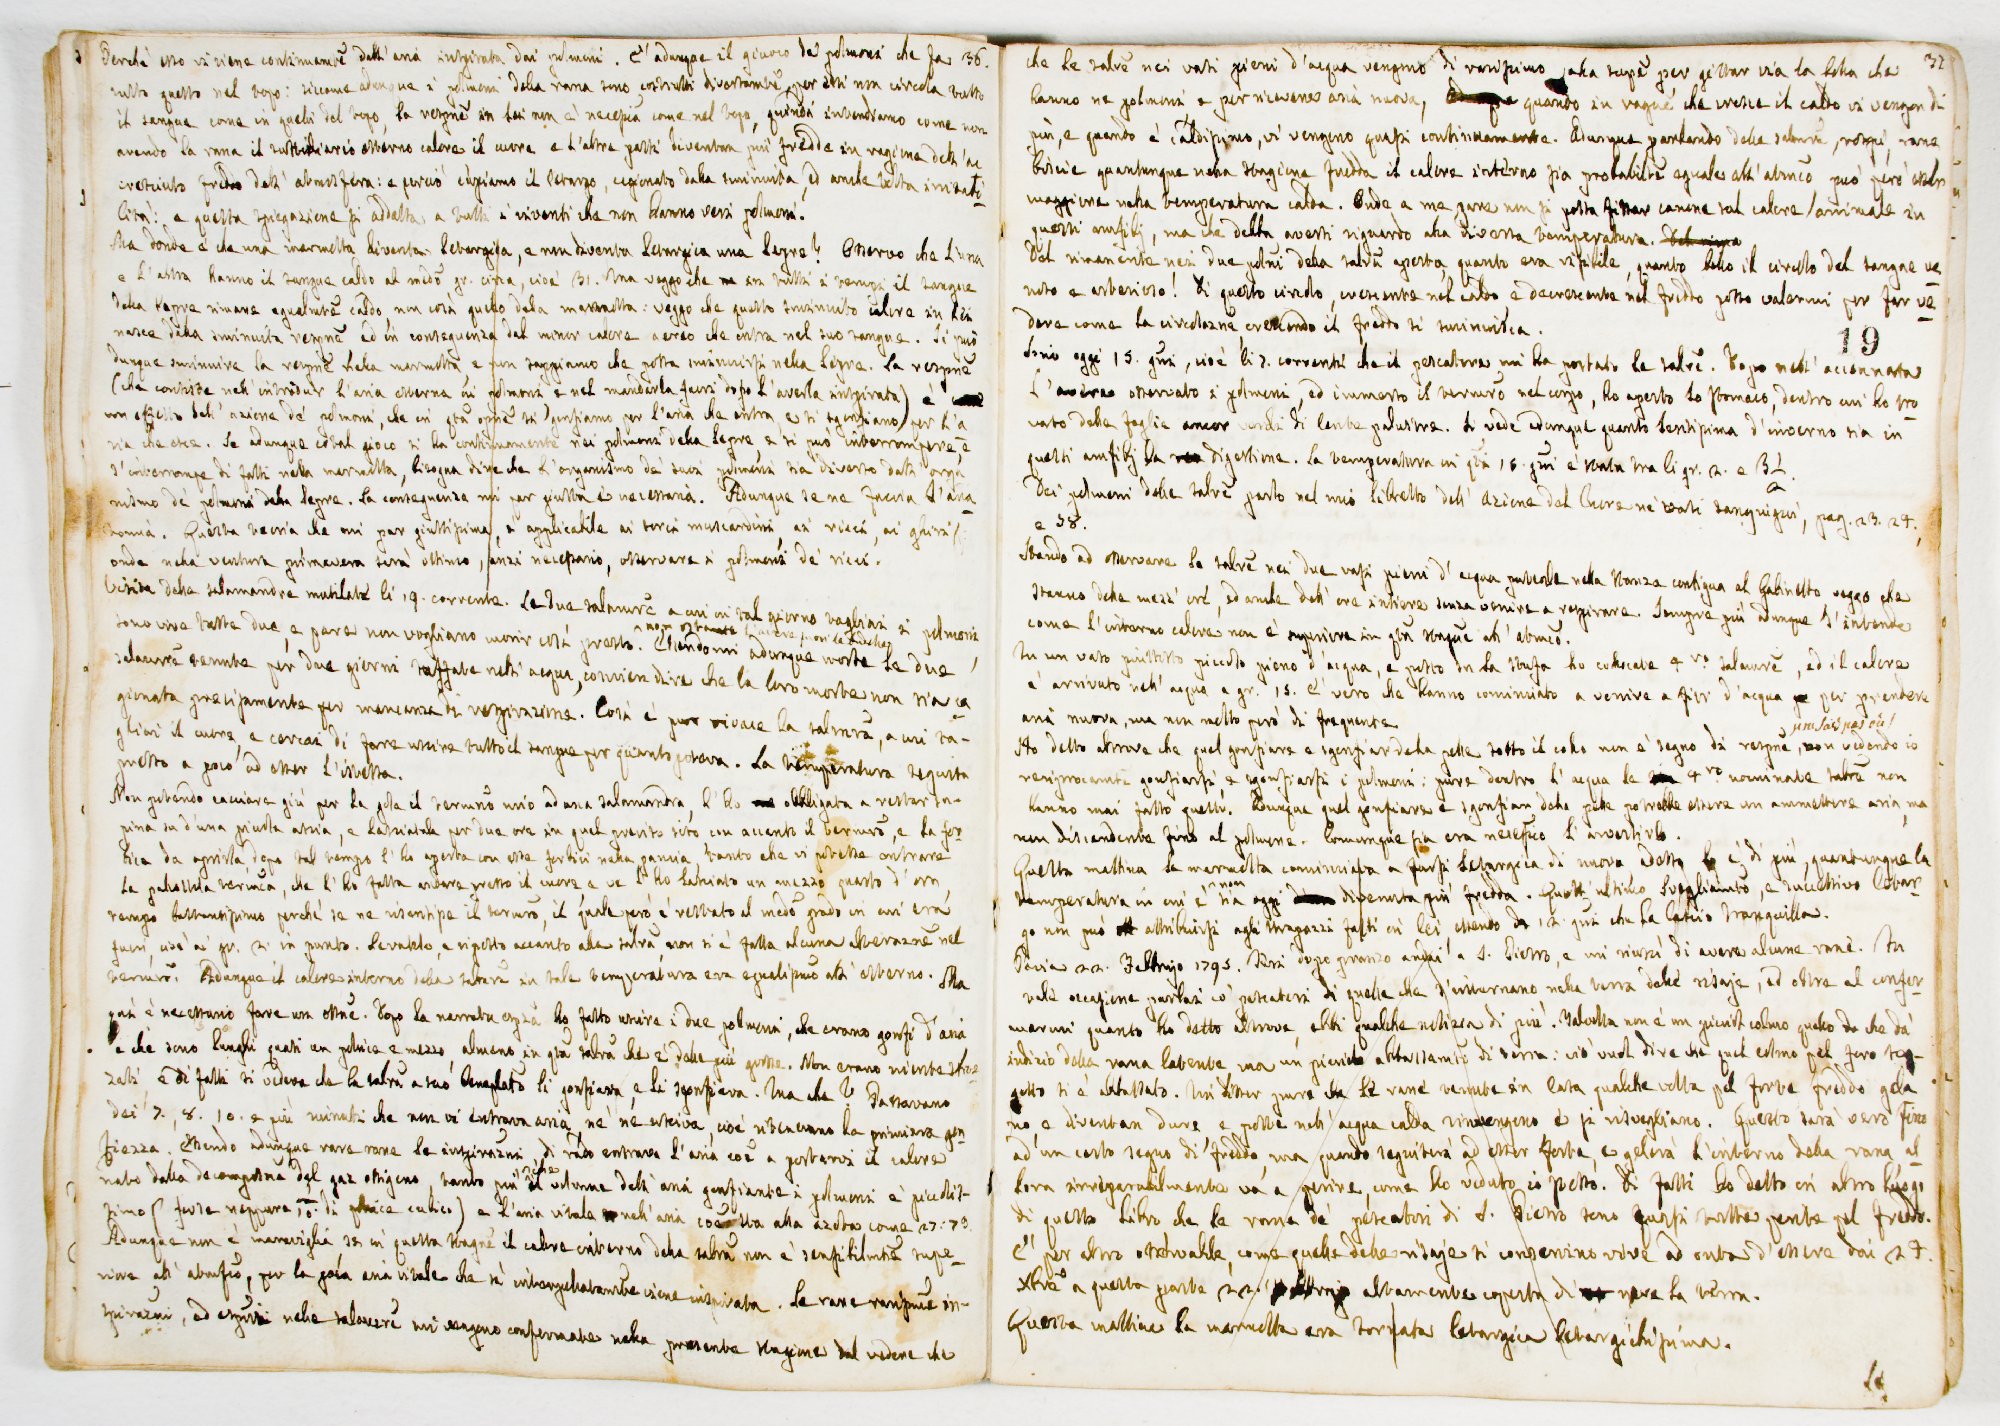 Perchè esso vi viene continuamte dall' aria inspirata dai polmoni. È adunque il giuoco de' polmoni che fa 36.
tutto questo nel topo: siccome adunque i polmoni della rana sono costrutti diversamte, per essi non circola tutto
il sangue come in quelli del topo, la respne in lei non è necessia come nel topo, quindi intendiamo come non
avendo la rana il sussidiario esterno calore il cuore e l'altre parti diventan più fredde in ragione dell' ac
cresciuto freddo dell' atmosfera: e perciò capiamo il letargo, cagionato dalla sminuita, ed anche tolta irritabi
lità: e questa spiegazione si adatta a tutti i viventi che non hanno veri polmoni.
Ma donde è che una marmotta diventa letargica, e non diventa letargica una lepre? Osservo che l'una
e l'altra hanno il sangue caldo al medo gr. circa, cioè 31. Ma veggo che in tutti i tempi il sangue
della lepre rimane egualmte caldo, non così quello della marmotta: veggo che questo sminuito calore in lei
nasce dalla sminuita respne ed in conseguenza dal minor calore aereo che entra nel suo sangue. Si può
dunque sminuire la respne della marmotta e non sappiamo che possa sminuirsi nella lepre. La respne
(che consiste nell' introdur l'aria esterna ai polmoni e nel mandarla fuori dopo l'averla inspirata) è
un effetto dell' azione de' polmoni, che in gta opne si gonfiano per l'aria che entra, e si sgonfiano per l'a
ria che esce. Se adunque cotal gioco si ha continuamente nei polmoni della lepre, e si può interrompere, e
s' interrompe di fatti nella marmotta, bisogna dire che l'organismo de' suoi polmoni sia diverso dall' orga
nismo de' polmoni della lepre. La conseguenza mi par giusta e necessaria. Adunque se ne faccia l'ana
tomia. Questa teoria che mi par giustissima, è applicabile ai sorci moscardini, ai ricci, ai ghiri
onde nella ventura primavera sarà ottimo, anzi necessario, osservare i polmoni de' ricci.
Visita delle salamandre mutilate li 19. corrente. Le due salamre a cui in tal giorno tagliai i polmoni
sono vive tutte due, e pare non vogliano morir così presto. Essendomi adunque morte le due
salamre tenute per due giorni tuffate nell' acqua, convien dire che la loro morte non sia ca
gionata precisamente per mancanza di respirazione. Così è pur vivace la salmra, a cui ta-
gliai il cuore, e cercai di fare uscire tutto il sangue per quanto poteva. La temperatura seguita
presso a poco ad esser l'istessa.
Non potendo cacciare giù per la gola il termmo mio ad una salamandra, l'ho obbligata a restar su-
pina su d'una giusta assia, e lasciatala per due ore in quel preciso sito con accanto il termmo, e la for-
bice da aprirla, dopo tal tempo l'ho aperta con esse forbici nella pancia, tanto che vi potesse entrare
la pallottola termica, che l'ho fatta andare presso il cuore e ve l'ho lasciato un mezzo quarto d'ora,
tempo bastantissimo perchè se ne risentisse il termmo, il quale però è restato al medo grado in cui era
fuori, cioè ai gr. 2. in punto. Levatolo, e riposto accanto alla salmra non si è fatta alcuna alterazne nel
termmo. Adunque il calore interno della salmra in tale temperatura era egualissmo all' esterno. Ma
quì è necessario fare una ossne. Dopo la narrata espza ho fatto uscire i due polmoni, che erano gonfi d'aria
e che sono lunghi quasi un pollice e mezzo, almeno in gta salmra che è delle più grosse. Non erano niente offe
zati e di fatti si vedeva che la salmra a suo beneplacito li gonfiava, e li sgonfiava. Ma che? Passavano
dei 7., 8. 10. e più minuti che non vi entrava aria, nè ne usciva, cioè ritenevano la primiera gon
fiezza. Essendo adunque rare rare le inspirazni, di rado entrava l'aria cioè a portarvi il calore
nato dalla decomposizne del gaz ossigeno, tanto più che il volume dell' aria gonfiante i polmoni è piccolis-
simo (forse neppure di pollice cubico) e l'aria vitale nell' aria coe sta alla azota come 27: 73.
Adunque non è maraviglia se in questa stagne il calore interno della salmra non è sensibilmte supe-
riore all' atmfco, per la poca aria vitale che sì interpolatamente viene inspirata. Le rare rarissime in-
spirazni, ed espirni nelle salamre mi vengono confermate nella presente stagione dal vedere che
che le salme nei vasi pieni d'acqua vengono di rarissimo alla supe per gittar via la bolla che 37
hanno ne' polmoni e per ricevere aria nuova, quando in ragne che cresce il caldo vi vengon di
più, e quando è caldissimo, vi vengono quasi continuamente. Adunque parlando delle salamre, rospi, rane
biscie quantunque nella stagione fredda il calore interno sia probabilte eguale all' atmco può però esser
maggiore nella temperatura calda. Onde a me pare non si possa fissar canone sul calore animale in
questi amfibj, ma che debba aversi riguardo alla diversa temperatura.
Del rimanente nei due polni della salmra aperta, quanto era visibile, quanto bello il circolo del sangue ve
noso e arterioso! Di questo circolo, crescente nel caldo e decrescente nel freddo posso valermi per far ve
dere come la circolazne crescendo il freddo si sminuisca.
19
Sono oggi 15. gni, cioè li 7. correnti che il pescatore mi ha portato le salme. Dopo nell' accennata
l'avere osservato i polmoni, ed immerso il termmo nel corpo, ho aperto lo stomaco, dentro cui ho tro
vato delle foglie ancor verdi di lente palustre. Si vede adunque quanto lentissima d'inverno sia in
questi amfibj la digestione. La temperatura in gti 15. gni è stata tra li gr. 2. e 3½.
Dei polmoni delle salme parlo nel mio libretto dell' Azione del Cuore ne' vasi sanguigni, pag. 23. 24,
e 38.
Stando ad osservare le salme nei due vasi pieni d'acqua postevole nella stanza contigua al Gabinetto veggo che
stanno delle mezz' ore, ed anche dell' ore intiere senza venire a respirare. Sempre più adunque s'intende
come l'interno calore non è superiore in gta stagne all' atmco.
In un vaso piuttosto piccolo pieno d'acqua, e posto su la stufa ho collocate 4 salamre, ed il calore
è arrivato nell' acqua a gr. 15. È vero che hanno cominciato a venire a fior d'acqua per prendere
aria nuova, ma non molto però di frequente.
Ho detto altrove che quel gonfiare e sgonfiar della pelle sotto il collo non è segno di respne, non vedendo io
reciprocamte gonfiarsi e sgonfiarsi i polmoni: pure dentro l'acqua le 4 nominate salme non
hanno mai fatto questo. Adunque quel gonfiare e sgonfiar della pelle potrebbe essere un ammettere aria, ma
non discendente fino al polmone. Comunque sia era necessrio l'avvertirlo.
Questa mattina la marmotta cominciava a farsi letargica di nuovo e di più, quantunque la
temperatura in cui è non sia oggi divenuta più fredda. Questo ultimo svegliamto, e successivo letar-
go non può attribuirsi agli strapazzi fatti in lei essendo da 12. gni che la lascio tranquilla.
Pavia 22. Febbrajo 1795. Ieri dopo pranzo andai a S. Pietro, e mi riuscì di avere alcune rane. In
tale occasione parlai co' pescatori di quelle che s'invernano nella terra delle risaje, ed oltre al confer-
marmi quanto ho detto altrove, ebbi qualche notizia di più. Talvolta non è un piccolo colmo quello che dà
indizio della rana latente ma un piccolo abbassamto di terra: ciò vuol dire che quel colmo pel foro sog-
getto si è abbassato. Mi disser pure che le rane tenute in casa qualche volta pel forte freddo gela
no e diventan dure, e poste nell' acqua calda rinvengono e si risvegliano. Questo sarà vero fino
ad un certo segno di freddo, ma quando seguiterà ad esser forte, e gelerà l'interno della rana al
lora irreparabilmente va a perire, come ho veduto io stesso. Di fatti ho detto in altro luogo
di questo Libro che le rane de' pescatori di S. Pietro sono quasi tutte perite pel freddo.
È per altro osservabile, come quelle delle risaje si conservino vive ad onta d'essere dai 24.
Xbre a questa parte 22. Febbrajo altamente coperta di neve la terra.
Questa mattina la marmotta era tornata letargica letargichissima.